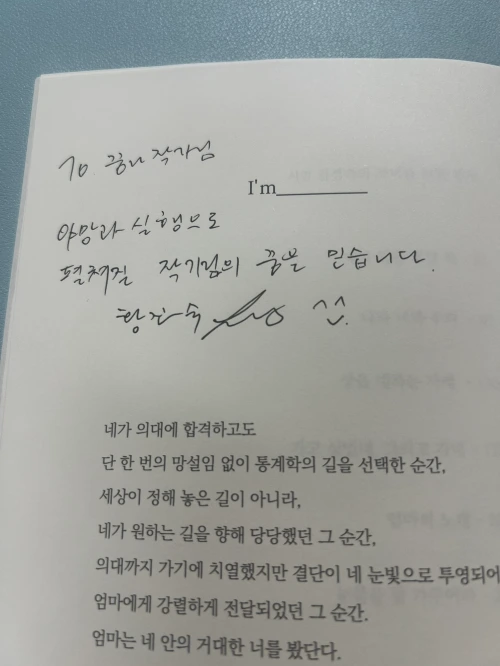 To. 긍나 작가님
I'm
야망과 실행으로
펼쳐질 작가님의 꿈을 믿습니다.
황진숙 ^^.
네가 의대에 합격하고도
단 한 번의 망설임 없이 통계학의 길을 선택한 순간,
세상이 정해 놓은 길이 아니라,
네가 원하는 길을 향해 당당했던 그 순간,
의대까지 가기에 치열했지만 결단이 네 눈빛으로 투영되어
엄마에게 강렬하게 전달되었던 그 순간.
엄마는 네 안의 거대한 너를 봤단다.